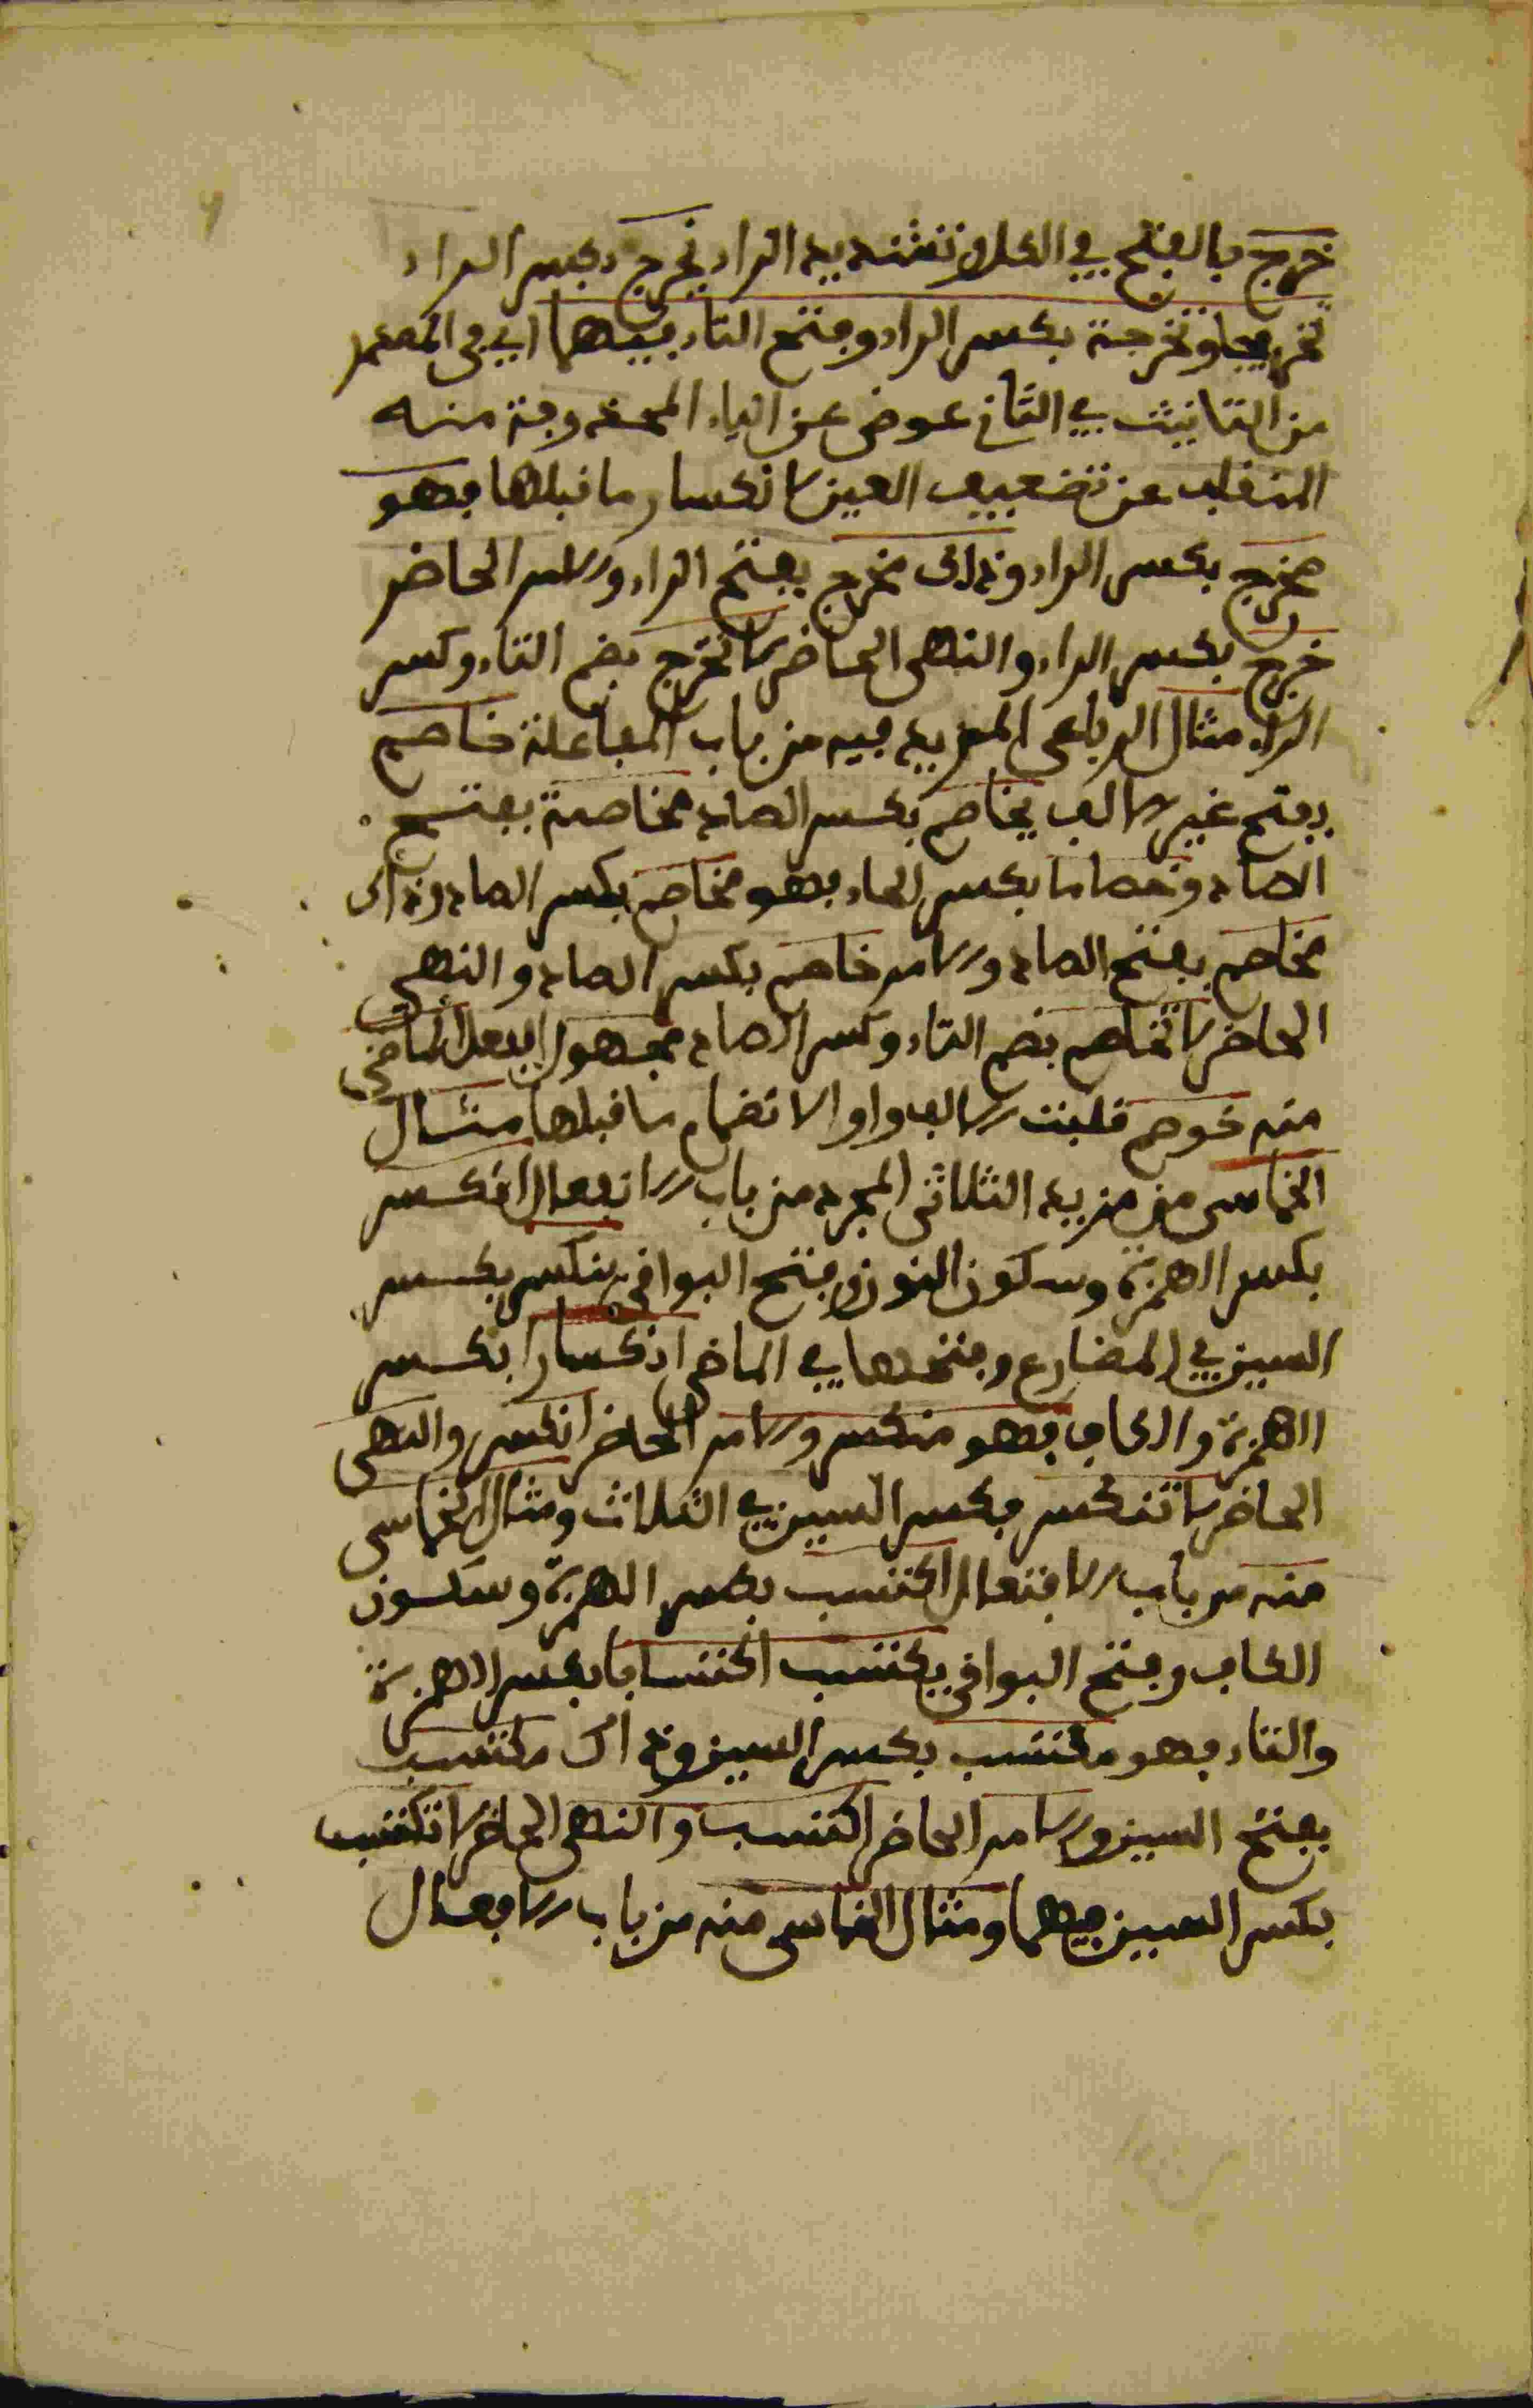 خرج بالفتح في الكل وتشديد الراء يخرج بكسر الراء
تخريجا وتخرجة بكسر الراء وفتح التاء فيهما اي في المصدر
من التانيث في الثاني عوض عن الياء المحذوفة منه
المنقلب عن تضعيف العين لانكسار ما قبلها فهو
مخرج بكسر الراء وذاك مخرج بفتح الراء والامر الحاضر
خرج بكسر الراء والنهى الحاضر لا تخرج بضم التاء وكسر
الراء مثال الرباعي المزيد فيه من باب المفاعلة خاصم
بفتح غير الالف يخاصم بكسر الصاد مخاصمة بفتح
الصاد وخصاما بكسر الخاء فهو مخاصم بكسر الصاد وذاك
مخاصم بفتح الصاد والامر خاصم بكسر الصاد والنهي
الحاضر لا تخاصم بضم التاء وكسر الصاد مجهول الفعل الماضي
منه خوصم قلبت الالف واوا لانضمام ما قبلها مثال
الخماسى من مزيد الثلاثى المجرد من باب الانفعال انكسر
بكسر الهمزة وسكون النون وفتح البواقي ينكسر بكسر
السين في المضارع وفتحها في الماضي انكسارا بكسر
الهمزة والكاف فهو منكسر والامر الحاضر انكسر والنهى
الحاضر لا تنكسر بكسر السين في الثلاث ومثال الخماسى
منه من باب الافتعال اكتسب بكسر الهمزة وسكون
الكاف وفتح البواقي يكتسب اكتسابا بكسر الهمزة
والتاء فهو مكتسب بكسر السين وذاك مكتسب
بفتح السين والامر الحاضر اكتسب والنهى الحاضر لا تكتسب
بكسر السين فيهما ومثال الخماسى منه من باب الافعلال